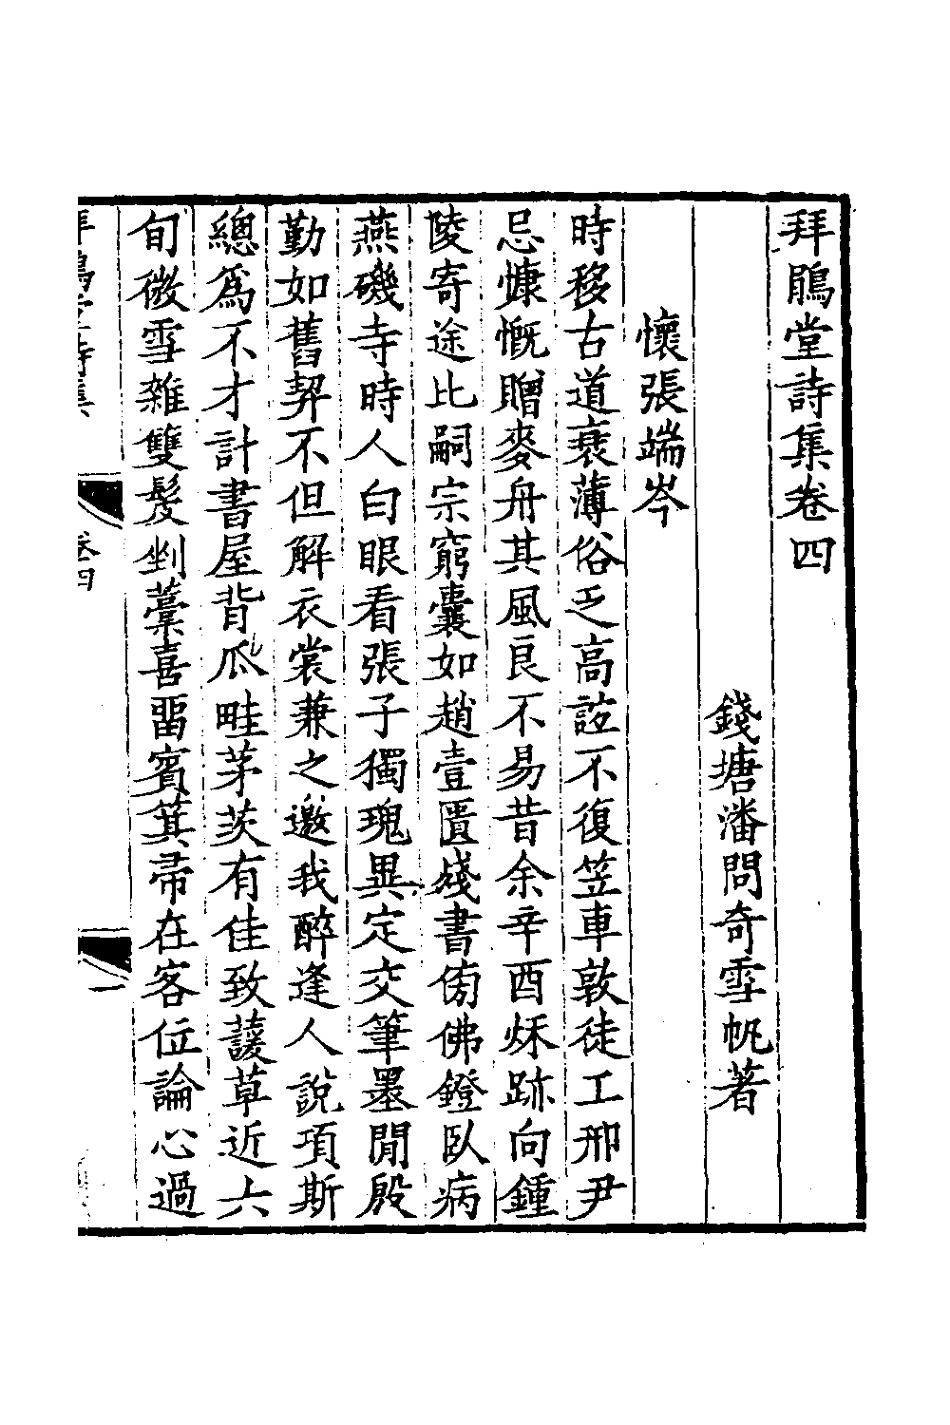 拜鵑堂詩集卷四
錢塘潘問奇雪帆著
懷張端岑
時移古道衰薄俗乏高誼不復笠車敦徒工邢尹
忌慷慨贈麥舟其風良不易昔余辛酉秌跡向鍾
陵寄途比嗣宗窮囊如趙壹匱殘書傍佛鐙臥病
燕磯寺時人白眼看張子獨瑰異定交筆墨閒殷
勤如舊契不但解衣裳兼之邀我醉逢人說項斯
總爲不才計書屋背瓜畦茅茨有佳致蘐草近六
旬微雪雜雙髮剉藁喜畱賓箕帚在客位論心過
卷四
一